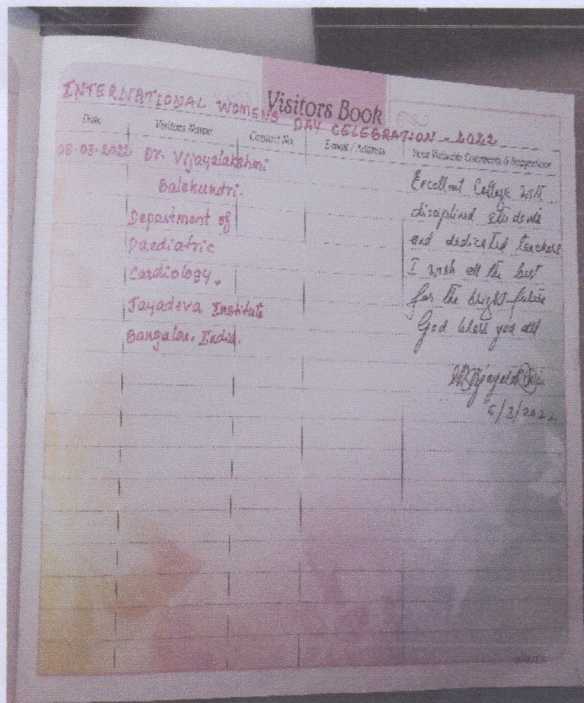 Visitors Book
INTERNATIONAL WOMENS DAY CELEBRATION - 2022
Date Visitors Name Contact No. E-mail / Address Your Valuable Comments & Suggestions
08-03-2022 Dr. Vijayalakshmi
Balekundri.
Department of
Paediatric
Cardiology.
Jayadeva Institute
Bangalore. India.
Excellent College with
disciplined students
and dedicated teachers
I wish all the best
for the bright future
God bless you all
/3/2022